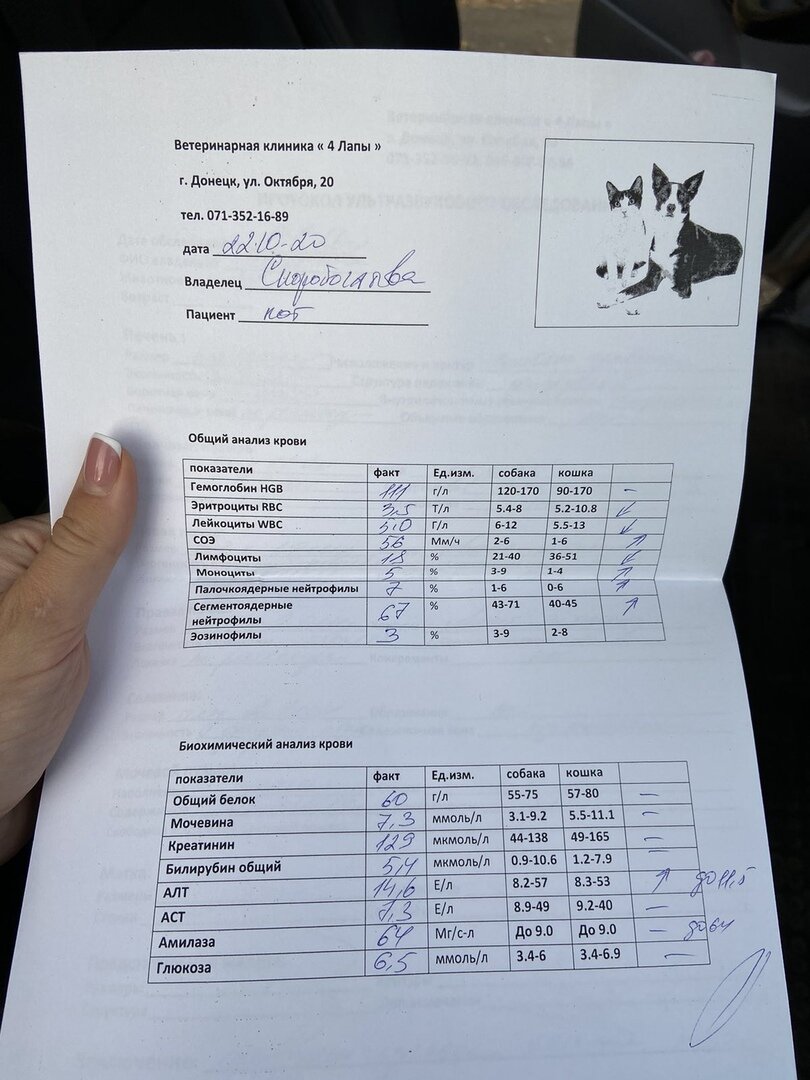 Ветеринарная клиника « 4 Лапы »
г. Донецк, ул. Октября, 20
тел. 071-352-16-89
дата 22.10-20
Владелец
Пациент кот
Общий анализ крови
показатели факт Ед.изм. собака кошка
Гемоглобин HGB 111 г/л 120-170 90-170 –
Эритроциты RBC 3,5 Т/л 5.4-8 5.2-10.8 ↙
Лейкоциты WBC 5,0 Г/л 6-12 5.5-13 ↙
СОЭ 56 Мм/ч 2-6 1-6 ↗
Лимфоциты 18 % 21-40 36-51 ↙
Моноциты 5 % 3-9 1-4 ↗
Палочкоядерные нейтрофилы 7 % 1-6 0-6 ↗
Сегментоядерные 67 % 43-71 40-45 ↗
нейтрофилы
Эозинофилы 3 % 3-9 2-8
Биохимический анализ крови
показатели факт Ед.изм. собака кошка
Общий белок 60 г/л 55-75 57-80 –
Мочевина 7,3 ммоль/л 3.1-9.2 5.5-11.1 –
Креатинин 129 мкмоль/л 44-138 49-165 –
Билирубин общий 5,4 мкмоль/л 0.9-10.6 1.2-7.9 –
АЛТ 14,6 Е/л 8.2-57 8.3-53 ↗ до 11,5
АСТ 7,3 Е/л 8.9-49 9.2-40 –
Амилаза 64 Мг/с-л До 9.0 До 9.0 – до 64
Глюкоза 6,5 ммоль/л 3.4-6 3.4-6.9 –